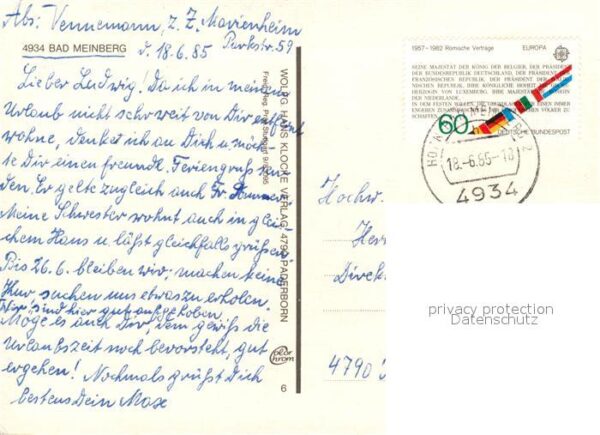 Abs: Vennemann, z. Z. Marienheim
Parkstr. 59
4934 BAD MEINBERG
d. 18.6.85
Lieber Ludwig! Da ich in meinem
Urlaub nicht so weit von Dir entfernt
wohne, denke ich an Dich u. möch-
te Dir einen freundl. Feriengruß sen-
den. Er gelte zugleich auch Fr.
Meine Schwester wohnt auch in glei-
chem Haus u. läßt gleichfalls grüßen.
Bis 26.6. bleiben wir, machen keine
Kur, suchen uns etwas zu erholen.
Wir sind hier gut aufgehoben.
Möge es auch Dir, dem gewiß die
Urlaubszeit noch bevorsteht, gut
ergehen! Nochmals grüßt Dich
bestens Dein Max
WOLFG. HANS KLOCKE VERLAG, 4790 PADERBORN
Freigabe Reg. Präs. Stuttgart
color
chrom
6
1957-1982 Römische Verträge EUROPA
SEINE MAJESTÄT DER KÖNIG DER BELGIER, DER PRÄSIDENT
DER BUNDESREPUBLIK DEUTSCHLAND, DER PRÄSIDENT DER
FRANZÖSISCHEN REPUBLIK, DER PRÄSIDENT DER ITALIE-
NISCHEN REPUBLIK, IHRE KÖNIGLICHE HOHEIT DIE GROSS-
HERZOGIN VON LUXEMBURG, IHRE MAJESTÄT DIE KÖNIGIN
DER NIEDERLANDE,
60
DEUTSCHE BUNDESPOST
18.-6.85-18
4934
Hochw.
Herr
Direk
4790
privacy protection
Datenschutz